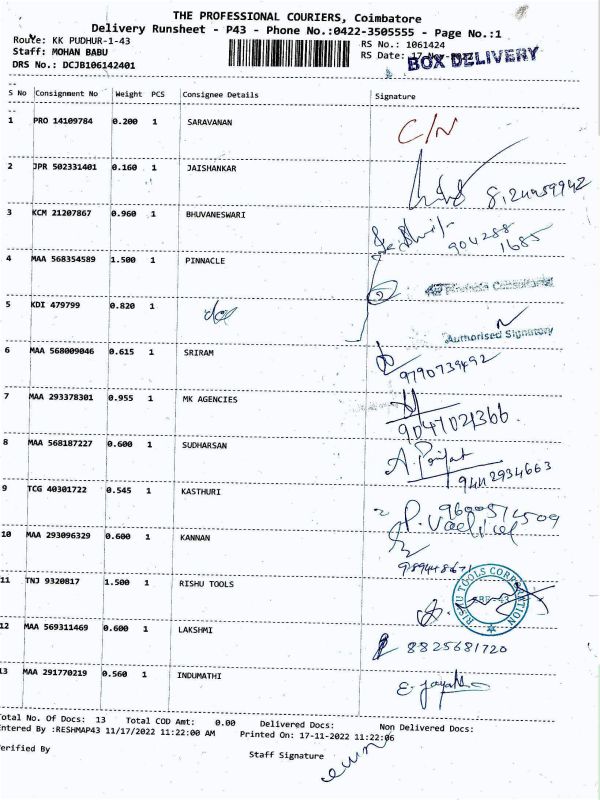 THE PROFESSIONAL COURIERS, Coimbatore
Delivery Runsheet - P43 - Phone No.:0422-3505555 - Page No.:1
Route: KK PUDHUR-1-43
RS No.: 1061424
Staff: MOHAN BABU
RS Date: 17-Nov-
BOX DELIVERY
DRS No.: DCJB106142401
S No Consignment No Weight PCS Consignee Details Signature
1 PRO 14109784 0.200 1 SARAVANAN C/N
2 JPR 502331401 0.160 1 JAISHANKAR
3 KCM 21207867 0.960 1 BHUVANESWARI
904288
1685
4 MAA 568354589 1.500 1 PINNACLE
5 KDI 479799 0.820 1
Authorised Signatory
6 MAA 568009046 0.615 1 SRIRAM
9790739492
7 MAA 293378301 0.955 1 MK AGENCIES
9047021366
8 MAA 568187227 0.600 1 SUDHARSAN
9442934663
9 TCG 40301722 0.545 1 KASTHURI
10 MAA 293096329 0.600 1 KANNAN
11 TNJ 9320817 1.500 1 RISHU TOOLS
RISHU TOOLS CORPORATION
12 MAA 569311469 0.600 1 LAKSHMI
8825681720
13 MAA 291770219 0.560 1 INDUMATHI
Total No. Of Docs: 13 Total COD Amt: 0.00 Delivered Docs: Non Delivered Docs:
Entered By :RESHMAP43 11/17/2022 11:22:00 AM Printed On: 17-11-2022 11:22:06
Verified By
Staff Signature